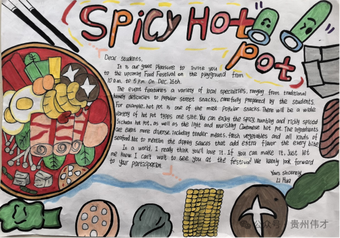 SPICY HOT
POT
Dear students,
It is our great pleasure to invite you
to the upcoming Food Festival on the playground from
10 a.m. to 5 p.m. Dec. 26th.
The event features a variety of local specialties, ranging from traditional
delicacies to popular sweet snacks, carefully prepared by the students.
For example, hot pot is one of the most popular snacks. There will be a wide
variety of hot pot types and
you can enjoy the spicy, numbing and richly spiced
Sichuan hot pot, as well as the light and nourishing Cantonese hot pot. The ingredients
are even more diverse, including tender meats, fresh vegetables and all kinds of
seafood
the dipping sauces that add extra flavor to every bite.
In a word, I really think you'll love it if you can make it. Just let
me know. I can't wait to see you at the festival! We really look forward
to your participation.
Yours sincerely,
Li Hua
公众号 · 贵州伟才